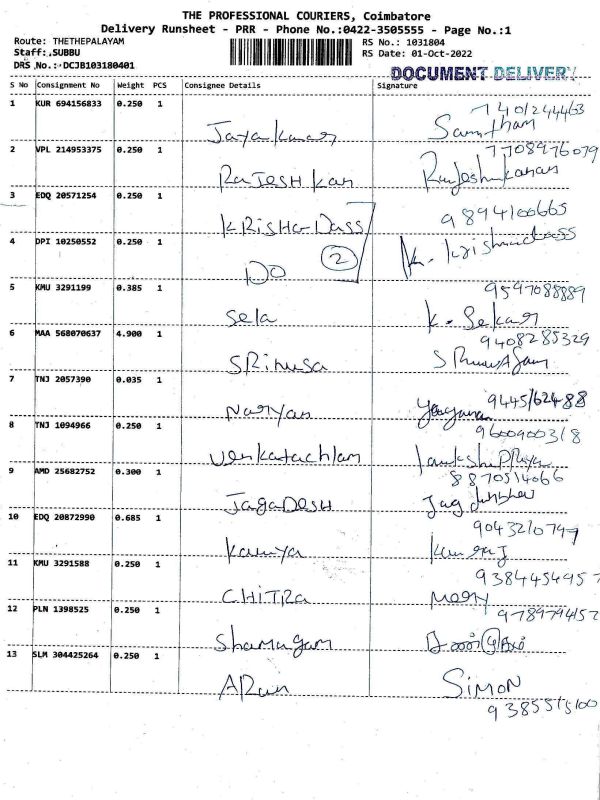 THE PROFESSIONAL COURIERS, Coimbatore
Delivery Runsheet - PRR - Phone No.:0422-3505555 - Page No.:1
Route: THETHEPALAYAM RS No.: 1031804
Staff:.SUBBU RS Date: 01-Oct-2022
DRS No.:-DCJB103180401
DOCUMENT DELIVERY
S No Consignment No Weight PCS Consignee Details Signature
1 KUR 694156833 0.250 1
Jayakumar
2 VPL 214953375 0.250 1 7708976079
RAJESH Kan
3 EDQ 20571254 0.250 1
KRISHA-DASS 9894100665
4 DPI 10250552 0.250 1 K. Krishnadass
DO 2
5 KMU 3291199 0.385 1 9597088889
Sela K. Sekar
6 MAA 568070637 4.900 1 9408285329
SRinusa
7 TNJ 2057390 0.035 1
Naryan 9445162488
8 TNJ 1094966 0.250 1 9600900318
Venkatachlam
9 AMD 25682752 0.300 1 8870514066
JAGADESH
10 EDQ 20872990 0.685 1
Kavnya 9043210799
11 KMU 3291588 0.250 1
CHITRA Mary 9384454957
12 PLN 1398525 0.250 1 9789794152
Shamugam
13 SLM 304425264 0.250 1
ARun SIMON
9385515100